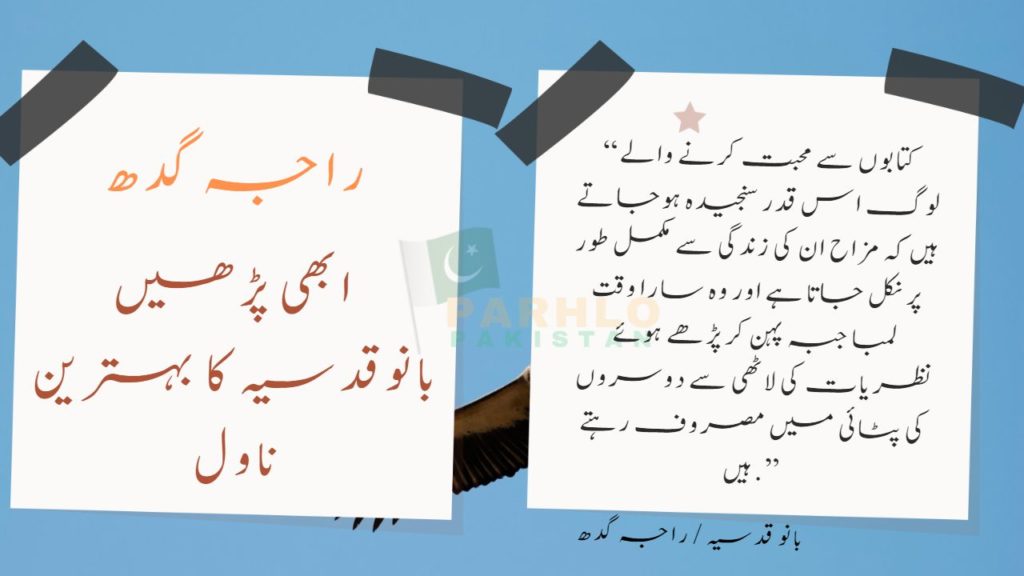 راجہ گدھ
ابھی پڑھیں
بانو قدسیہ کا بہترین
ناول
“کتابوں سے محبت کرنے والے
لوگ اس قدر سنجیدہ ہو جاتے
ہیں کہ مزاح ان کی زندگی سے مکمل طور
پر نکل جاتا ہے اور وہ سارا وقت
لمبا جبہ پہن کر پڑھے ہوئے
نظریات کی لاٹھی سے دوسروں
کی پٹائی میں مصروف رہتے
ہیں.”
بانو قدسیہ / راجہ گدھ
PARHLO
PAKISTAN